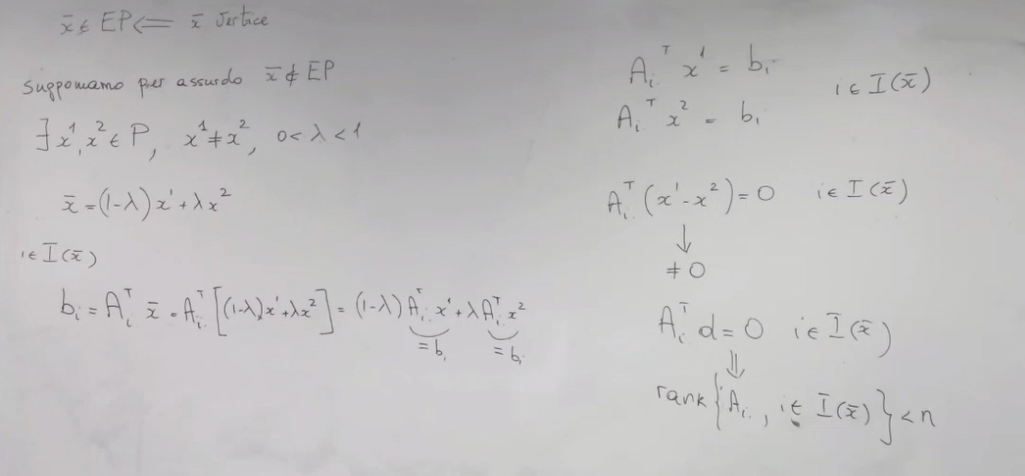 x̄ ∈ EP ⟸ x̄ vertice
Suppomamo per assurdo x̄ ∉ EP
∃ x¹, x² ∈ P, x¹ ≠ x², 0 < λ < 1
x̄ = (1-λ) x¹ + λx²
i ∈ I(x̄)
bᵢ = Aᵢᵀ x̄ = Aᵢᵀ [(1-λ)x¹+λx²] = (1-λ) Aᵢᵀ x¹ + λ Aᵢᵀ x²
= bᵢ = bᵢ
Aᵢᵀ x¹ = bᵢ
i ∈ I(x̄)
Aᵢᵀ x² = bᵢ
Aᵢᵀ (x¹ - x²) = 0 i ∈ I(x̄)
↓
≠ 0
Aᵢᵀ d = 0 i ∈ I(x̄)
⇓
rank {Aᵢ, i ∈ I(x̄)} < n